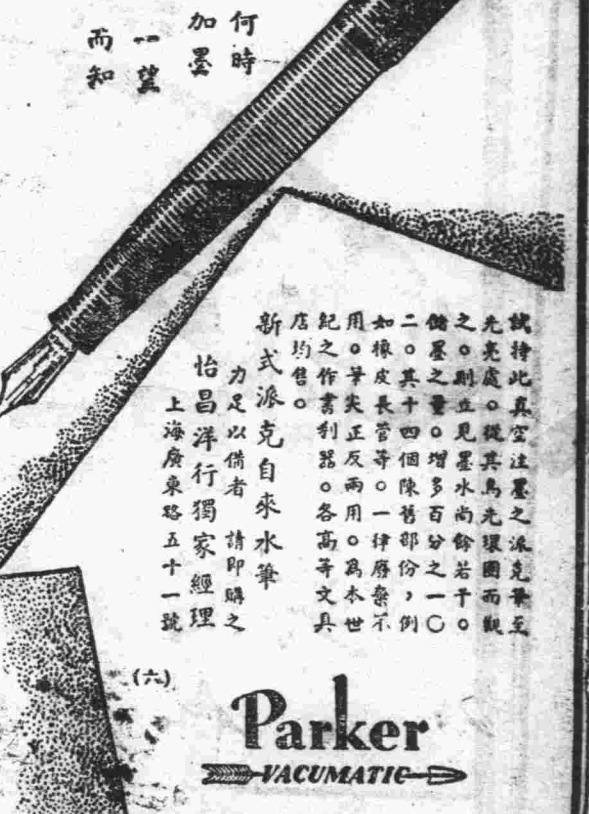 何時
加墨
一望
而知
試持此真空注墨之派克筆至
光亮處。從其烏光環圈而觀
之。則立見墨水尚餘若干。
儲墨之量。增多百分之一〇
二。其十四個陳舊部份，例
如橡皮長管等。一律廢棄不
用。筆尖正反兩用。爲本世
紀之作書利器。各高等文具
店均售。
新式派克自來水筆
力足以備者 請即購之
怡昌洋行獨家經理
上海廣東路五十一號
(六)
Parker
VACUMATIC